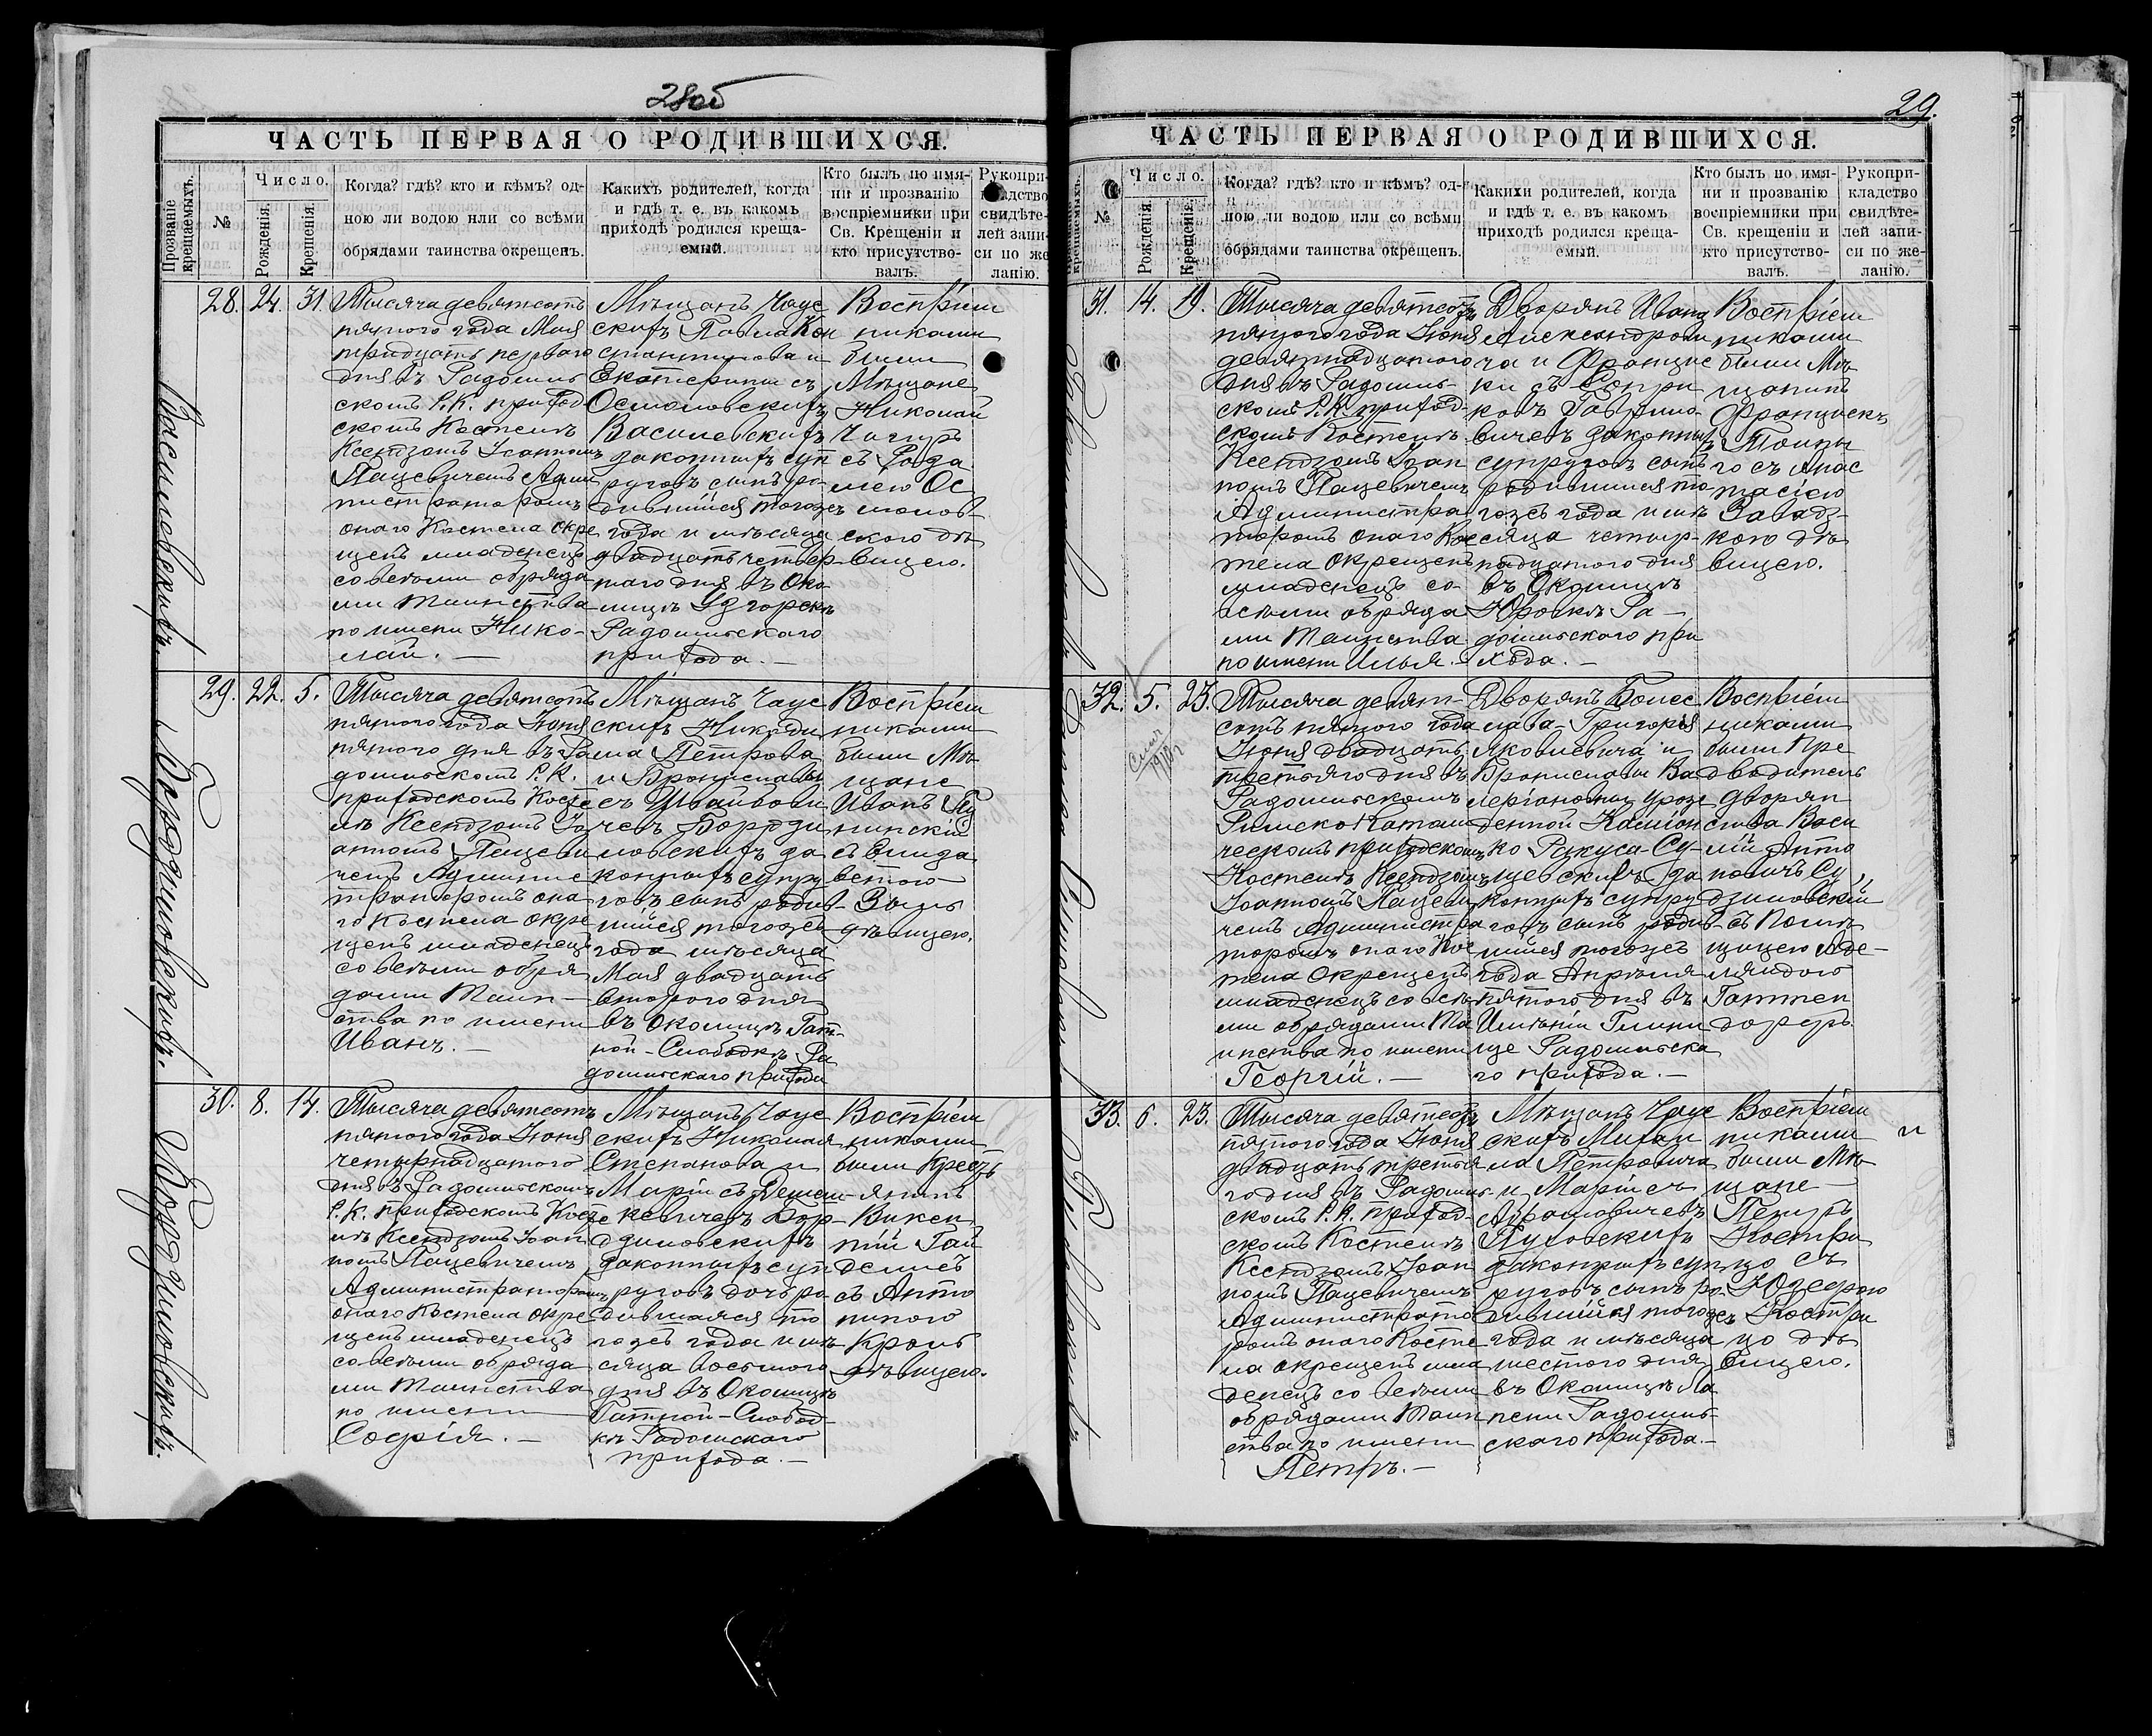 28об
ЧАСТЬ ПЕРВАЯ О РОДИВШИХСЯ.
Прозваніе крещаемыхъ.
№
Число.
Рожденія.
Крещенія.
Когда? гдѣ? кто и кѣмъ? од-
ною ли водою или со всѣми
обрядами таинства окрещенъ.
Какихъ родителей, когда
и гдѣ т. е. въ какомъ
приходѣ родился креща-
емый.
Кто былъ по имя-
ни и прозванію
воспріемники при
Св. Крещеніи и
кто присутство-
валъ.
Рукопри-
кладство
свидѣте-
лей запи-
си по же
ланію.
Василевскихъ.
28. 24. 31.
Тысяча девятсотъ
пятого года Мая
тридцать перваго
дня въ Радошк
скомъ Р.К. приход
скомъ Костелѣ
Ксендзомъ Іоанномъ
Пацевичемъ Адми
нистраторомъ
онаго Костела окре
щенъ младенецъ
со всѣми обряда
ми Таинства
по имени Нико-
лай. —
Мѣщанъ Чаус
скихъ Павла Кон
стантинова и
Екатерины съ
Осмоловскихъ
Василевскихъ
законныхъ суп
руговъ сынъ ро-
дившійся тогожъ
года и мѣсяца
двадцать четвер-
таго дня въ Око
лицѣ Узгоркѣ
Радомльскаго
прихода. —
Воспріем
никами
были
Мѣщане
Николай
съ
Ос
молов-
ского дѣ
вицею.
Бородзиловскихъ.
29. 22. 5.
Тысяча девятсотъ
пятого года Іюня
пятого дня въ Ра
домльскомъ Р.К.
приходскомъ Косте
лѣ Ксендзомъ Іо
анномъ Пацеви
чемъ Админис
траторомъ она
го Костела окре
щенъ младенецъ
со всѣми обря
дами Таин-
ства по имени
Иванъ. —
Мѣщанъ Чаус
скихъ Никоди
ма Петрова
и Брониславы
съ
Бородзи
ловскихъ за
конныхъ супру
говъ сынъ родив-
шійся тогожъ
года мѣсяца
Мая двадцать
второго дня
въ околицѣ Гат-
ной-Слободкѣ Ра
домльскаго прихода
Воспріем
никами
были Мѣ-
щане
Иванъ
съ Елиза
ветою
дѣвицею.
Бородзиловскихъ.
30. 8. 14.
Тысяча девятсотъ
пятого года Іюня
четырнадцатого
дня въ Радомльскомъ
Р.К. приходскомъ Косте
лѣ Ксендзомъ Іоан
номъ Пацевичемъ
Администраторомъ
онаго Костела окре
щенъ младенецъ
со всѣми обряда
ми Таинства
по имени
Софія. —
Мѣщанъ Чаус
скихъ Николая
Степанова и
Маріи съ
Боро-
дзиловскихъ
законныхъ суп
руговъ дочь ро-
дившаяся то
гожъ года и мѣ
сяца восьмого
дня въ Околицѣ
Гатной-Слобод-
кѣ Радомскаго
прихода. —
Воспріем
никами
были Крестъ
янинъ
Викен
тій Гай
съ Анто
ниною
Кроль
дѣвицею.
29.
ЧАСТЬ ПЕРВАЯ О РОДИВШИХСЯ.
крещаемыхъ.
№
Число.
Рожденія.
Крещенія.
Когда? гдѣ? кто и кѣмъ? од-
ною ли водою или со всѣми
обрядами таинства окрещенъ.
Какихи родителей, когда
и гдѣ т. е. въ какомъ
приходѣ родился креща-
емый.
Кто былъ по имя-
ни и прозванію
воспріемники при
Св. крещеніи и
кто присутство-
валъ.
Рукопри-
кладство
свидѣте-
лей запи-
си по же-
ланію.
31. 14. 19.
Тысяча девятсотъ
пятого года Іюня
девятнадцатого
дня въ Радомль-
скомъ Р.К. приход-
скомъ Костелѣ
Ксендзомъ Іоан
номъ Пацевичемъ
Администра
торомъ онаго Кос
тела окрещенъ
младенецъ со
всѣми обряда
ми Таинства
по имени Илья. —
Дворянъ Ивана
Александрови
ча и Францис
ки съ
Гаврило-
вичевъ законныхъ
супруговъ сынъ
родившійся то
гожъ года и мѣ
сяца четыр-
надцатого дня
въ Околицѣ
Юровкѣ Ра-
домльского при
хода. —
Воспріем
никами
были Мѣ-
щанинъ
Францискъ
съ Анас
тасіею
Завадз-
кою дѣ
вицею.
32. 5. 23.
Тысяча девят-
сотъ пятого года
Іюня двадцать
третьяго дня въ
Радомльскомъ
Римско Катали
ческомъ приходскомъ
Костелѣ Ксендзомъ
Іоанномъ Пацеви
чемъ Администра
торомъ онаго Кос
тела окрещенъ
младенецъ со всѣ
ми обрядами Та
инства по имени
Георгій. —
Дворянъ Болес
лава-Григорія
Яковлевича и
Брониславы Ва
леріановны урож
денной
Ракуса-Су-
щевскихъ за
конныхъ супру
говъ сынъ родив-
шійся тогожъ
года Апрѣля
пятого дня въ
Имѣніи Глини
ще Радомльска
го прихода. —
Воспріем
никами
были Пре
дводитель
дворян
ства Васи
лій Анто
новичъ Су
дзиловскій
съ Помѣ
щицею Аде-
ляидою
Гаттен
33. 6. 23.
Тысяча девятсотъ
пятого года Іюня
двадцать третья
го дня въ Радомль-
скомъ Р.К. приход-
скомъ Костелѣ
Ксендзомъ Іоан
номъ Пацевичемъ
Администрато
ромъ онаго Косте
ла окрещенъ мла
денецъ со всѣми
обрядами Таин
ства по имени
Петръ. —
Мѣщанъ Чаус
скихъ Михаи
ла Петровича
и Маріи съ
Абрамовичевъ
законныхъ суп
руговъ сынъ ро-
дившійся тогожъ
года и мѣсяца
шестого дня
въ Околицѣ Ла
пени Радомль-
скаго прихода. —
Воспріем
никами
были Мѣ-
щане
Петръ
Костри
цо съ
Юзефою
Костри
цо дѣ
вицею.